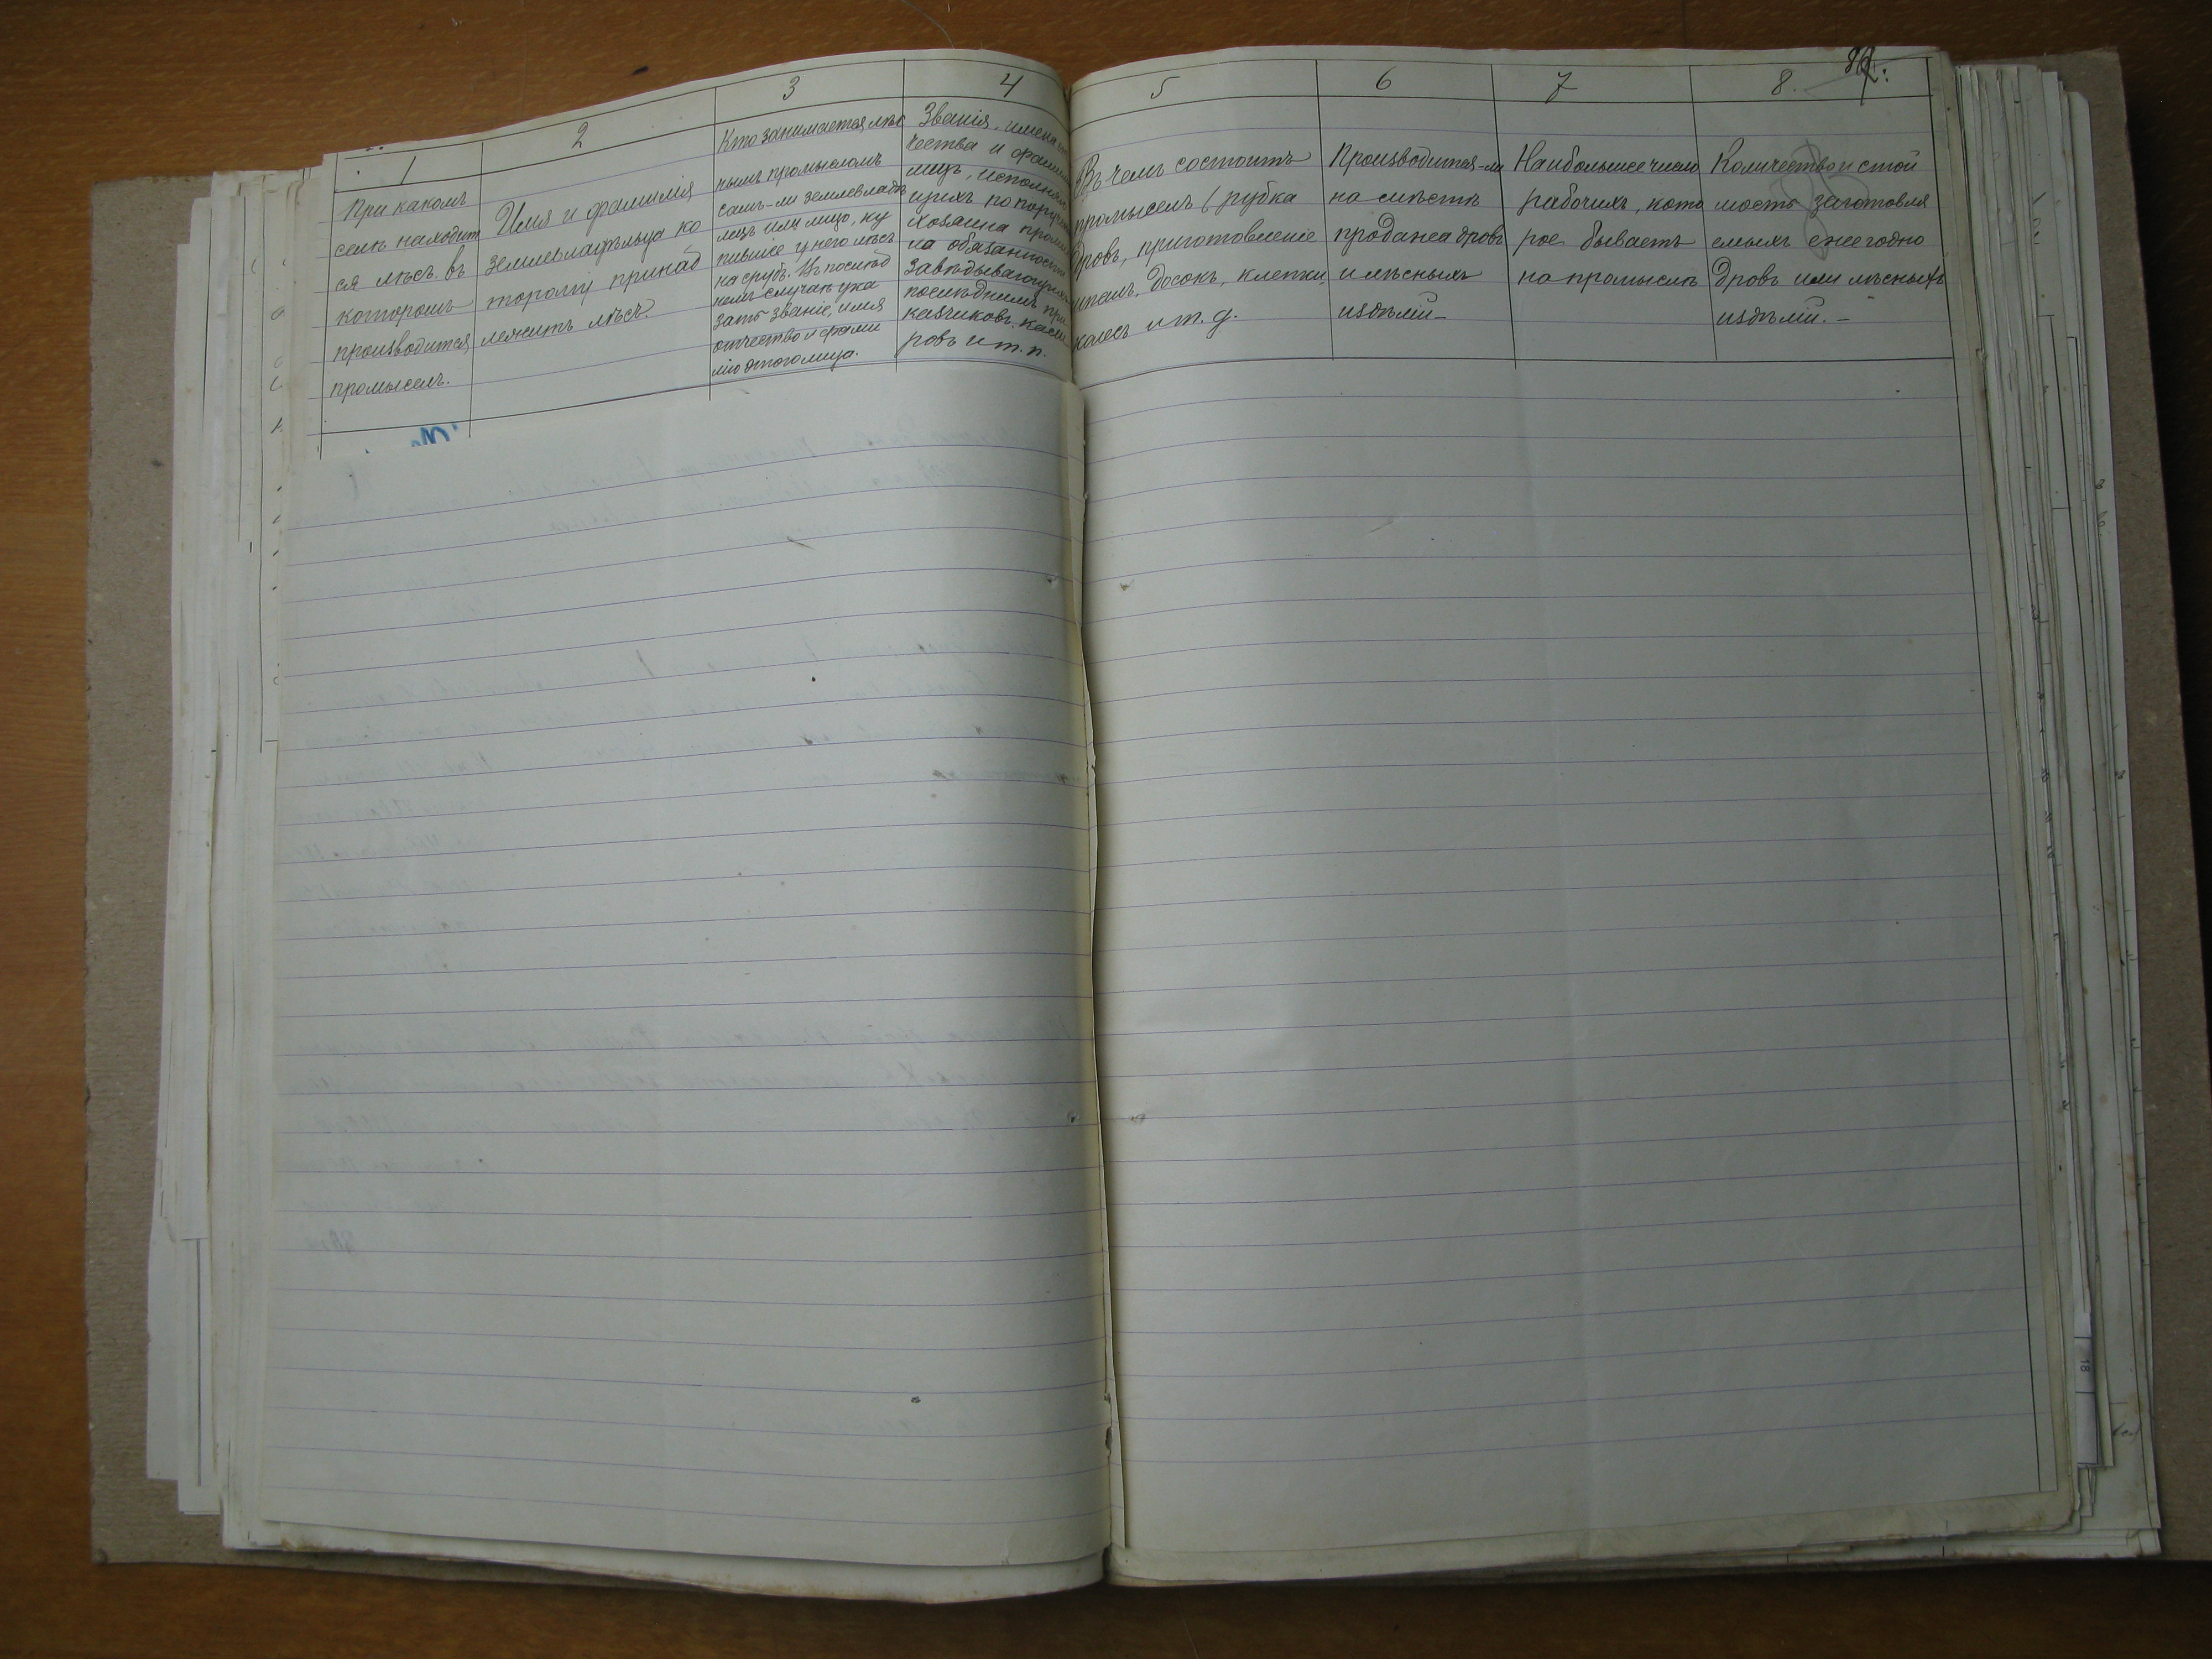 1
2
3
4
5
6
7
8.
При какомъ
селѣ находит
ся лѣсъ въ
которомъ
производится
промыселъ.
Имя и фамилія
землевладѣльца ко
торому принад
лежитъ лѣсъ.
Кто занимается лѣс
нымъ промысломъ
самъ-ли землевладѣ
лецъ или лицо, ку
пившее у него лѣсъ
на срубъ. Въ послѣд
немъ случаѣ ука
зать званіе, имя
отчество и фами
лію этого лица.
Званія, имена
чества и фамиліи
лицъ, исполняю
щихъ по поруче
хозяина промы
ла обязанности
завѣдывающихъ
послѣднимъ при
казчиковъ, касси
ровъ и т. п.
Въ чемъ состоитъ
промыселъ (рубка
дровъ, приготовленіе
шпалъ, досокъ, клепки,
колесъ и т. д.
Производится-ли
на мѣстѣ
продажа дровъ
и лѣсныхъ
издѣлій-
Наибольшее число
рабочихъ, кото
рое бываетъ
на промыслѣ
Количество и стои
мость заготовля
емыхъ ежегодно
дровъ или лѣсныхъ
издѣлій. -